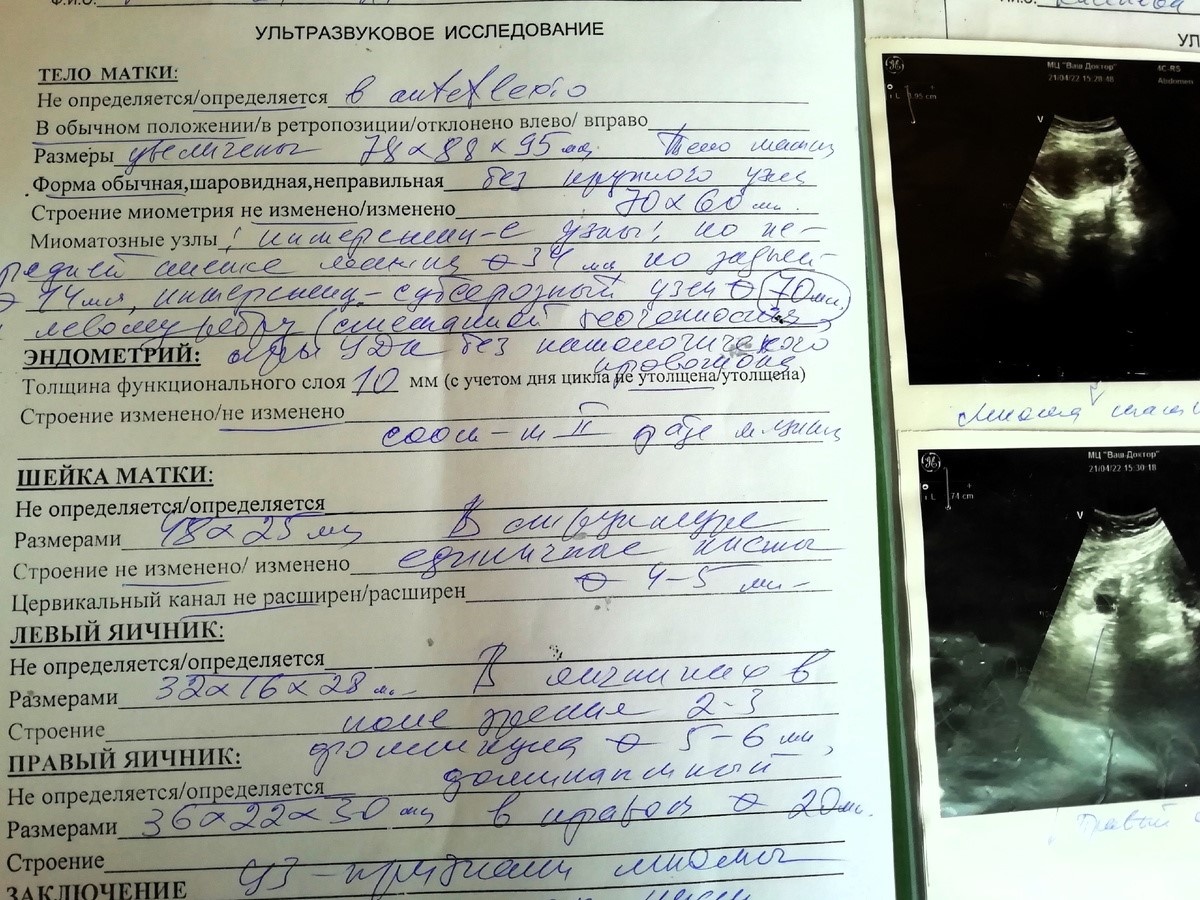 Ф.И.О.
УЛЬТРАЗВУКОВОЕ ИССЛЕДОВАНИЕ
ТЕЛО МАТКИ:
Не определяется/определяется в anteflexio
В обычном положении/в ретропозиции/отклонено влево/ вправо
Размеры увеличены 78х88х95 мм. Тело матки
Форма обычная,шаровидная,неправильная без крупного узла
Строение миометрия не изменено/изменено 70х60 мм.
Миоматозные узлы: интерстиц-е узлы: по пе-
редней стенке матки 34 мм, по задней
14мм, интерстиц-субсерозный узел 70мм
левому ребру (смешанной эхогенности,
ЭНДОМЕТРИЙ: при ЦДК без патологического
кровотока
Толщина функционального слоя 10 мм (с учетом дня цикла не утолщена/утолщена)
Строение изменено/не изменено
соот-т II фазе м.цикла
ШЕЙКА МАТКИ:
Не определяется/определяется
Размерами 48х25 мм В структуре
Строение не изменено/ изменено единичные кисты
Цервикальный канал не расширен/расширен 4-5 мм
ЛЕВЫЙ ЯИЧНИК:
Не определяется/определяется
Размерами 32х16х28 мм В яичниках в
Строение поле зрения 2-3
ПРАВЫЙ ЯИЧНИК: фолликула 5-6 мм,
Не определяется/определяется доминантный
Размерами 36х22х30 мм в правом 20мм.
Строение
ЗАКЛЮЧЕНИЕ УЗ-признаки миомы
УЛ
МЦ "Ваш Доктор"
21/04/22 15:28:48
4C-RS
Abdomen
V
Миома матки
МЦ "Ваш Доктор"
21/04/22 15:30:18
V
Правый